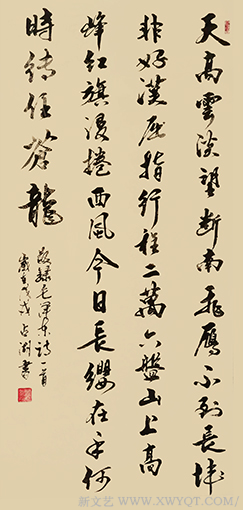 天高雲淡望斷南飛鴈不到長城
非好漢屈指行程二萬六盤山上高
峰紅旗漫捲西風今日長纓在手何
時縛住蒼龍
毛澤東詩一首
歲在戊戌占書
新文艺 WWW.XWYQT.COM